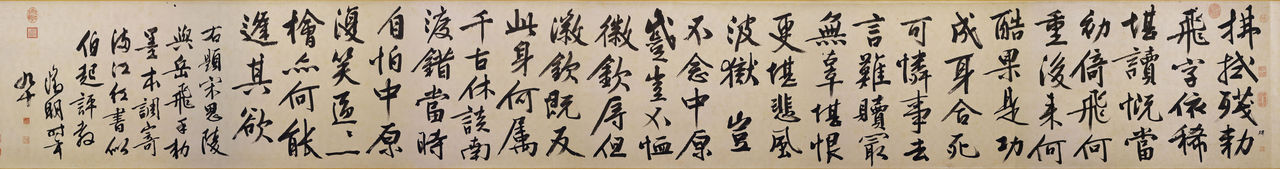 拂拭殘勅
飛字依稀
堪讀慨當
初倚飛何
重後来何
酷果是功
成身合死
可憐事去
言難贖最
無辜堪恨
更堪悲風
波獄 豈
不念中原
蹙豈不恤
徽欽辱但
徽欽既反
此身何属
千古休談南
渡錯當時
自怕中原
復笑區〻
檜亦何能
逢其欲
右題宋思陵
與岳飛手勅
墨本調寄
满江红書似
伯起評教
徵明時年
九十